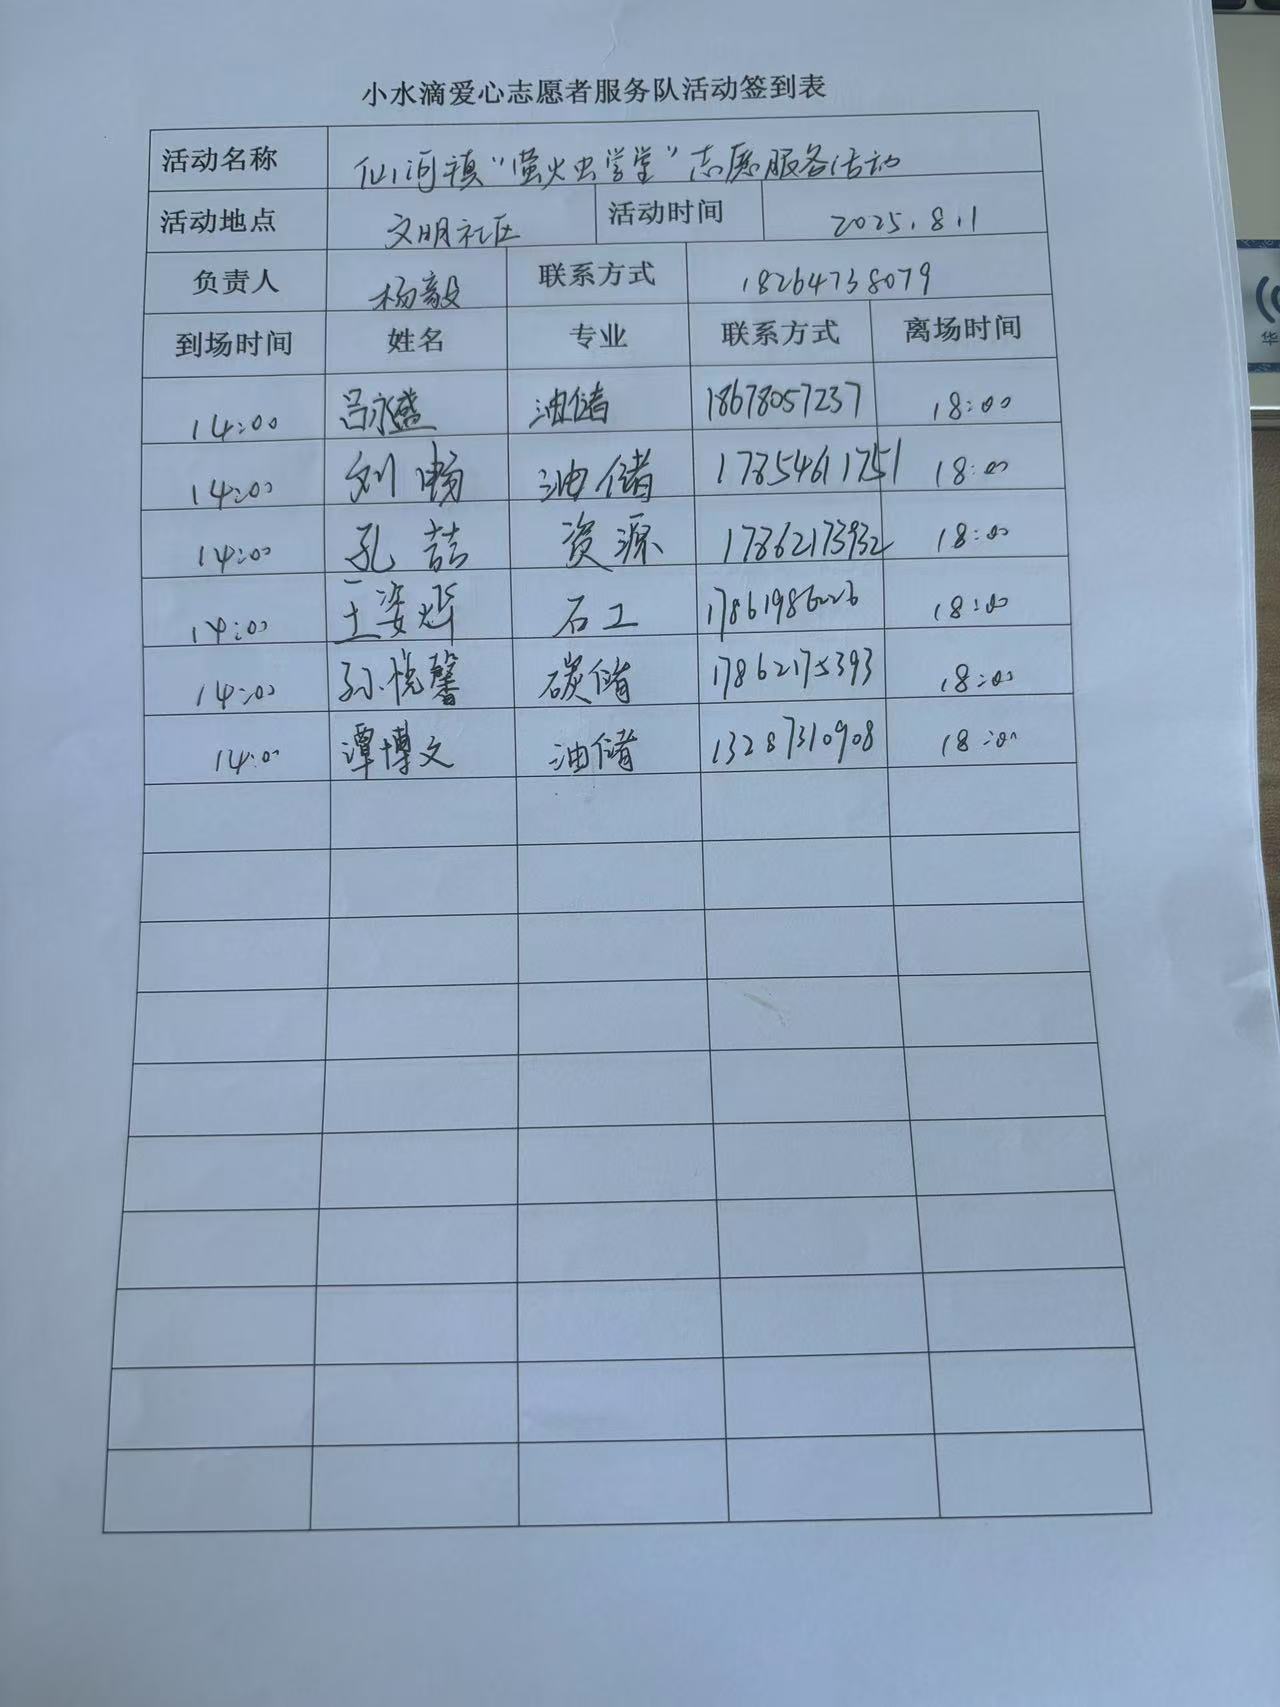 小水滴爱心志愿者服务队活动签到表
活动名称 仙河镇“萤火虫学堂”志愿服务活动
活动地点 文明社区 活动时间 2025.8.1
负责人 杨毅 联系方式 18264738079
到场时间 姓名 专业 联系方式 离场时间
14:00 吕永盛 油储 18678057237 18:00
14:00 刘畅 油储 17854611751 18:00
14:00 孔喆 资源 17862173932 18:00
14:00 王姿烨 石工 17861986226 18:00
14:00 孙悦馨 碳储 17862175393 18:00
14:00 谭博文 油储 13287310908 18:00
华